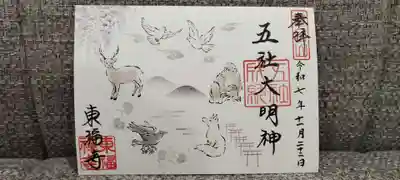 奉拝
令和七年十一月二十二日
五社大明神
東福寺